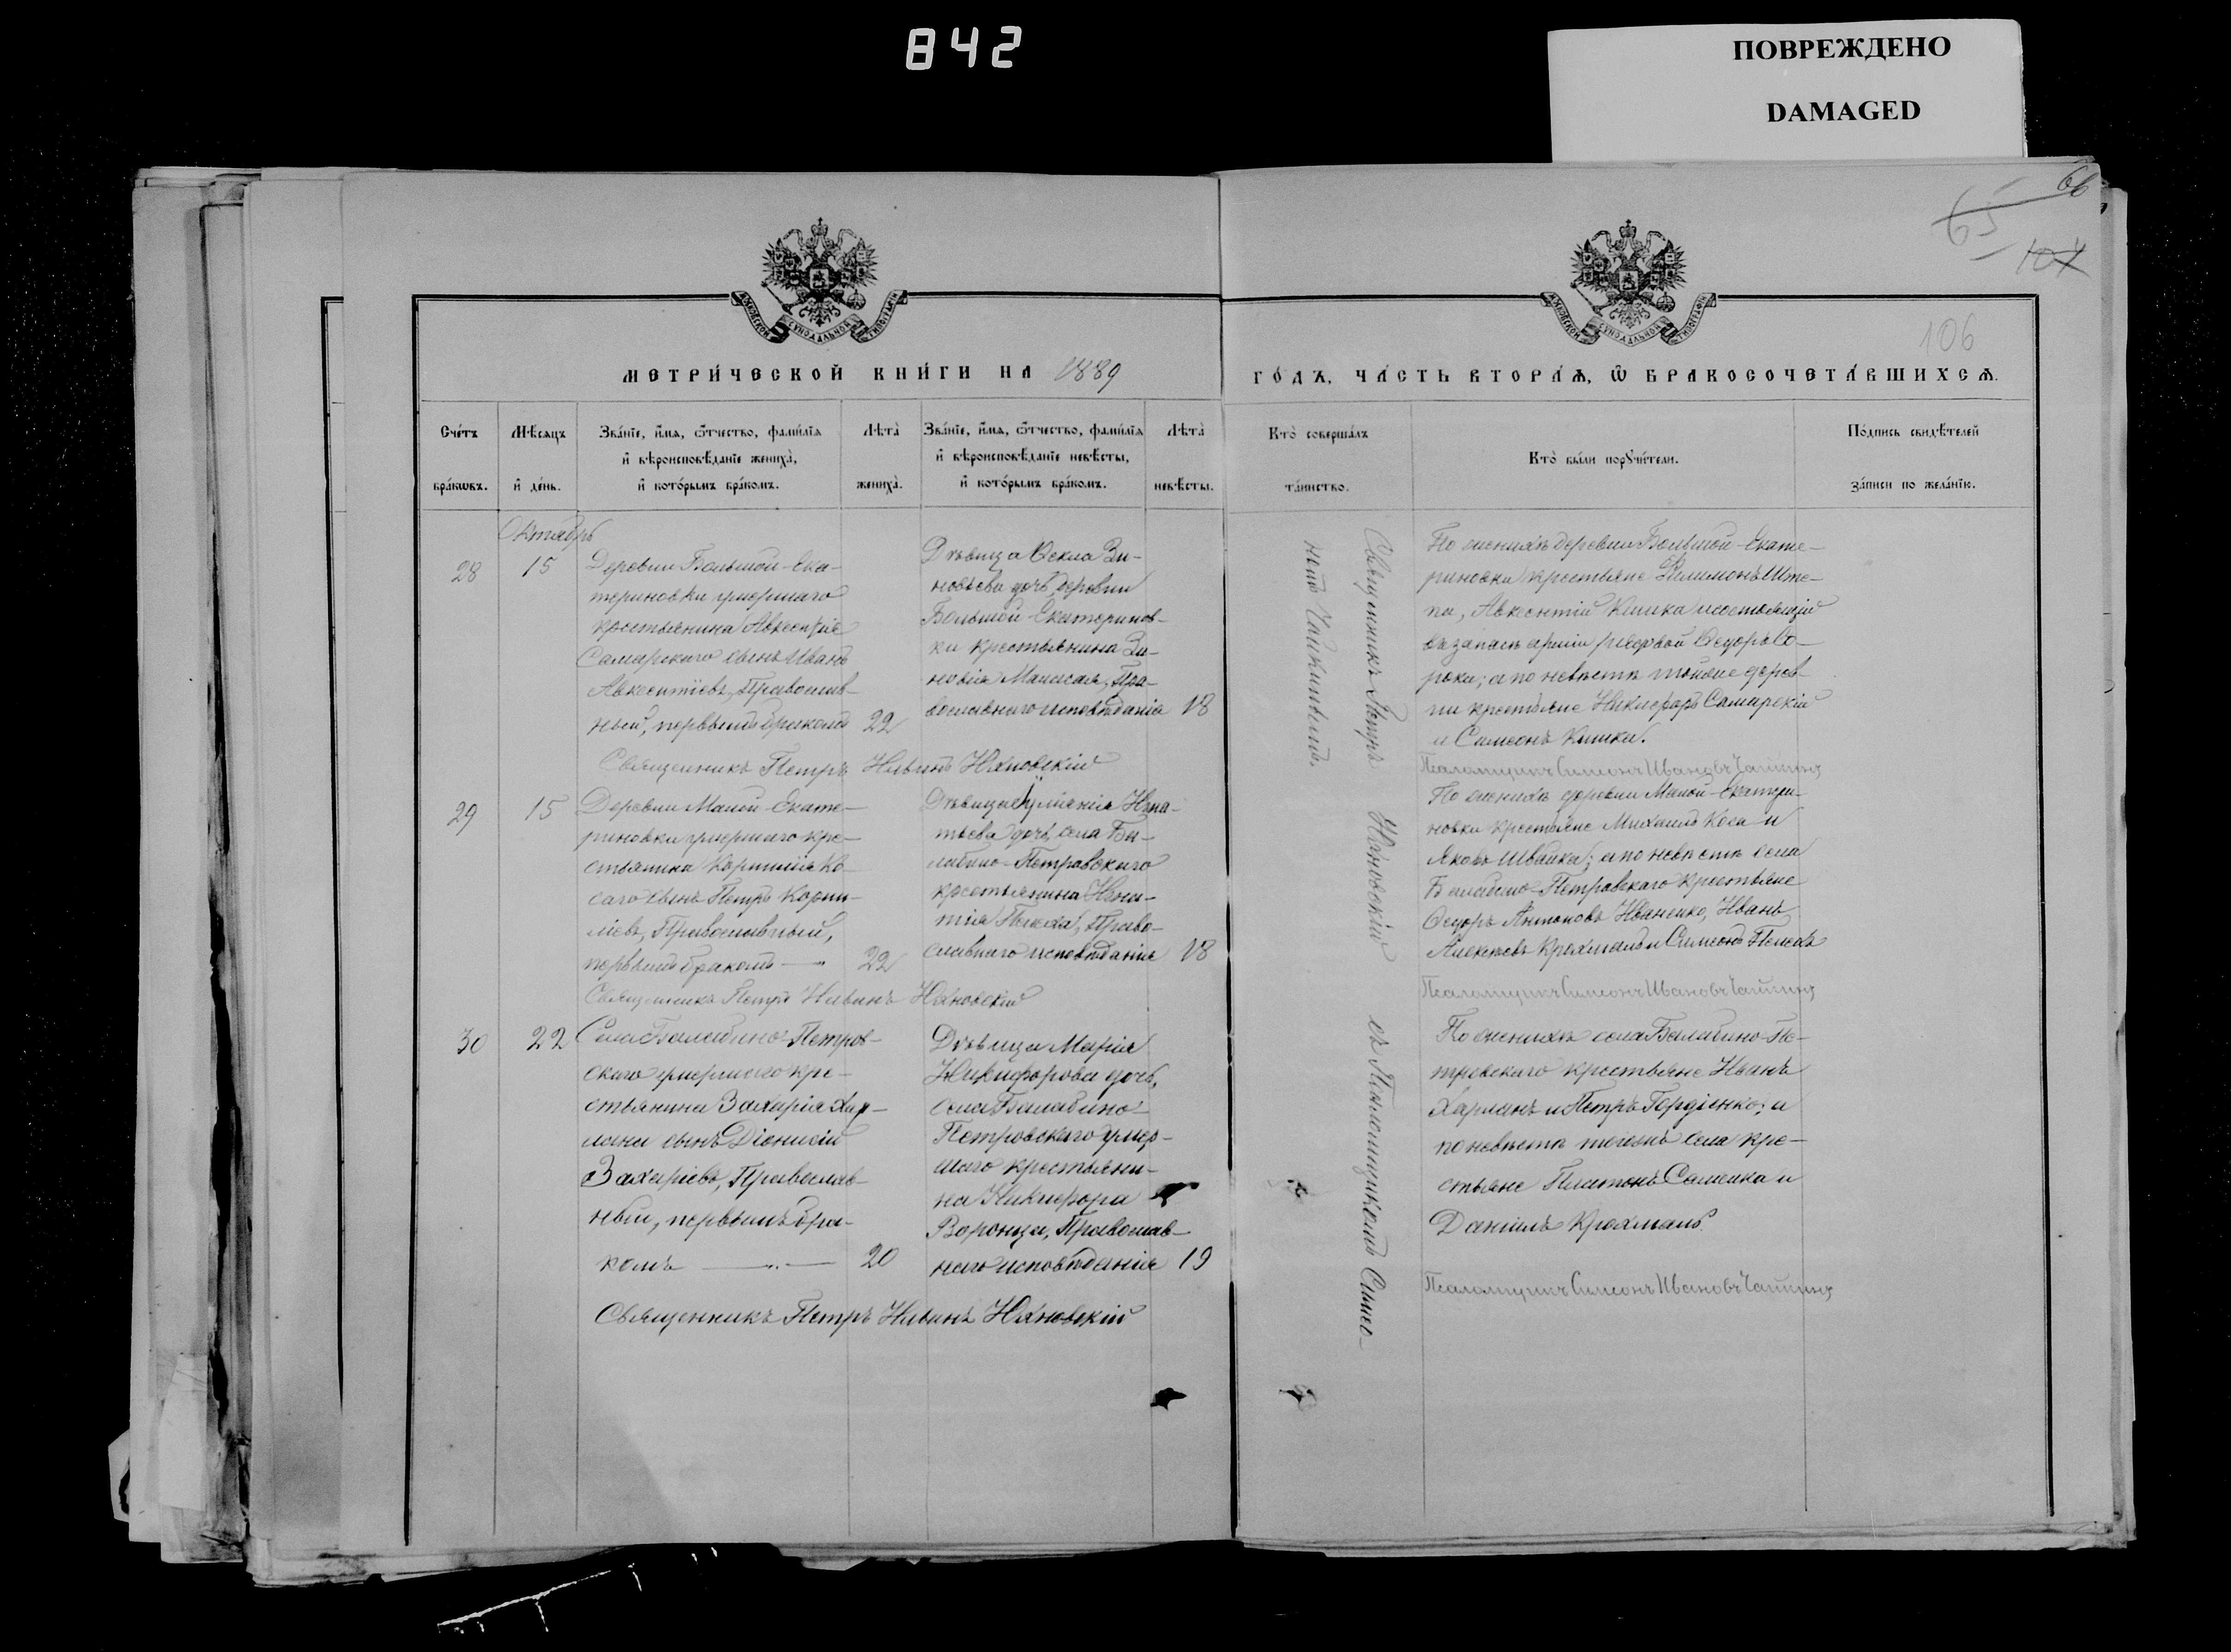 842
ПОВРЕЖДЕНО
DAMAGED
66
65
107
106
МЕТРИ́ЧЕСКОЙ КНИ́ГИ НА 1889
ГО́ДЪ, ЧА́СТЬ ВТОРА́Ѧ, Ѽ БРАКОСОЧЕТА́ВШИХСѦ.
Сче́тъ бра́кѡвъ.
Мѣ́сяцъ и҆ де́нь.
Зва́нїе, и҆́мѧ, ѻ҆́тчество, фами́лїѧ
и҆ вѣроисповѣ́данїе жениха̀,
и҆ кото́рымъ бра́комъ.
Лѣта̀ жениха̀.
Зва́нїе, и҆́мѧ, ѻ҆́тчество, фами́лїѧ
и҆ вѣроисповѣ́данїе невѣ́сты,
и҆ кото́рымъ бра́комъ.
Лѣта̀ невѣ́сты.
Кто̀ соверша́лъ
та́инство.
Кто̀ бы́ли порꙋчи́тели.
По́дпись свидѣ́телей
за́писи по жела́нїю.
Октябрь
28
15
Деревни Большой-Ека-
териновки умершаго
крестьянина Авксентія
Самарскаго сынъ Иванъ
Авксентіевъ, Православ-
ный, первымъ бракомъ
22
Дѣвица Ѳекла Зи-
новьева дочь, деревни
Большой-Екатеринов-
ки крестьянина Зи-
новія, Пра-
вославнаго исповѣданія
18
Священникъ Петръ Нивинъ Яновскій
По женихѣ деревни Большой-Екате-
риновки крестьяне Филимонъ Ште-
па, Авксентій Кишка и состоящій
въ запасѣ арміи рядовой Ѳедоръ Со-
рока; а по невѣстѣ той же дерев-
ни крестьяне Никифоръ Самарскій
и Симеонъ Кишка.
Псаломщикъ Симеонъ Ивановъ
29
15
Деревни Малой-Екате-
риновки умершаго кре-
стьянина Корнилія Ко-
саго сынъ Петръ Корни-
ліевъ, Православный,
первымъ бракомъ
22
Дѣвица Игна-
тьева дочь, села Ба-
лабино-Петровскаго
крестьянина Игна-
тія Пелеха, Право-
славнаго исповѣданія
18
Священникъ Петръ Нивинъ Яновскій
По женихѣ деревни Малой-Екатери-
новки крестьяне Михаилъ Коса и
Яковъ Швайка; а по невѣстѣ села
Балабино-Петровскаго крестьяне
Ѳедоръ Антоновъ Иваненко, Иванъ
Алексѣевъ Крохмаль и Симеонъ Пелехъ
Псаломщикъ Симеонъ Ивановъ
30
22
Села Балабино-Петров-
скаго умершаго кре-
стьянина Захарія Хар-
лана сынъ Діонисій
Захаріевъ, Православ-
ный, первымъ бра-
комъ
20
Дѣвица Марія
Никифорова дочь,
села Балабино-
Петровскаго умер-
шаго крестьяни-
на Никифора
Воронца, Православ-
наго исповѣданія
19
Священникъ Петръ Нивинъ Яновскій
По женихѣ села Балабино-Пе-
тровскаго крестьяне Иванъ
Харланъ и Петръ Гордіенко; а
по невѣстѣ тогожъ села кре-
стьяне Платонъ Саменко и
Даніилъ Крохмаль.
Псаломщикъ Симеонъ Ивановъ
Священникъ Петръ Яновскій съ Псаломщикомъ Симео-
номъ